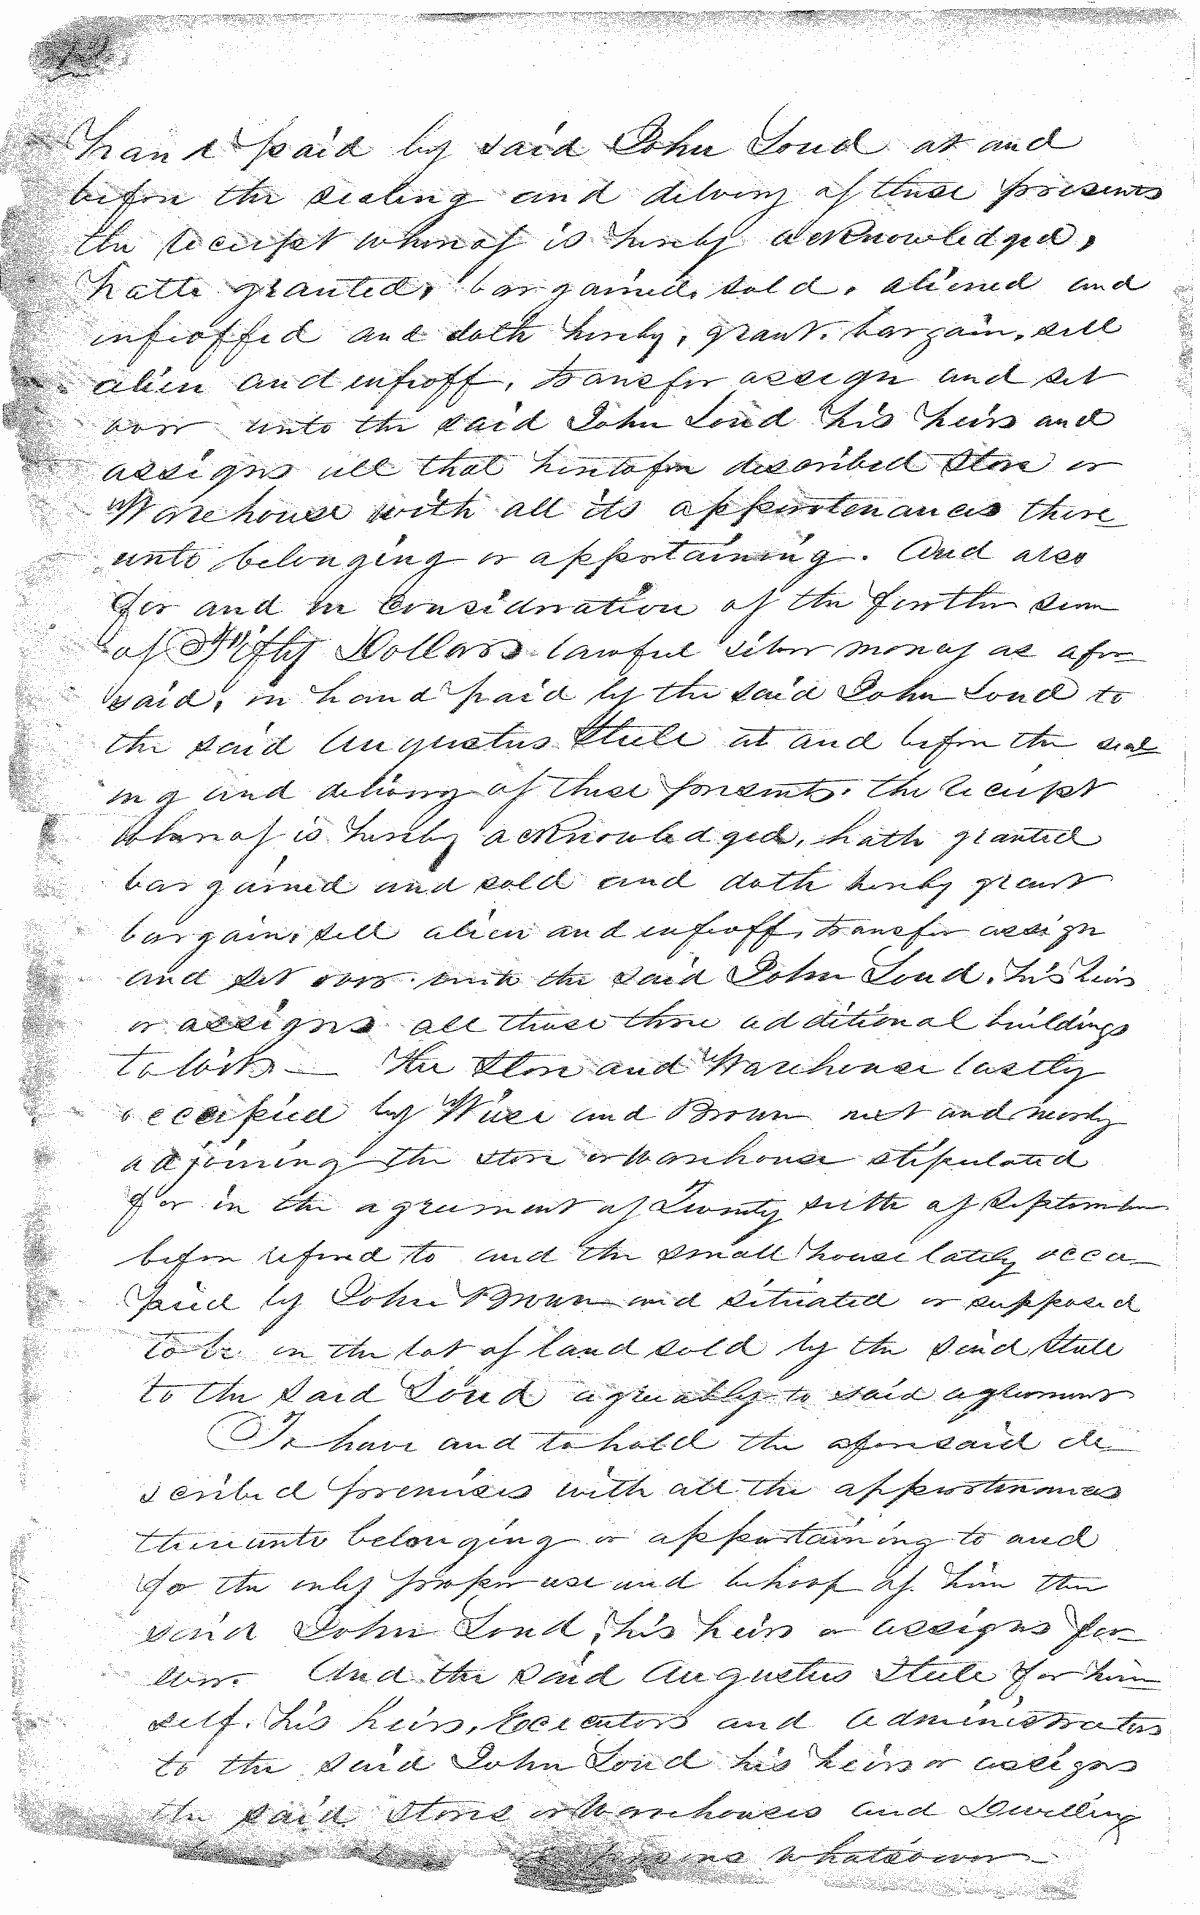 12
hand paid by said John Loud at and
before the sealing and delivery of these presents
the receipt whereof is hereby acknowledged,
hath granted, bargained, sold, aliened and
infeoffed and doth hereby, grant, bargain, sell
alien and infeoff, transfer assign and set
over unto the said John Loud his heirs and
assigns all that heretofore described Store or
Warehouse with all its appurtenances there
unto belonging or appertaining. And also
for and in consideration of the further sum
of Fifty Dollars lawful silver money as afore
said, in hand paid by the said John Loud to
the said Augustus Steele at and before the seal
ing and delivery of these presents, the receipt
whereof is hereby acknowledged, hath granted
bargained and sold and doth hereby grant
bargain, sell alien and infeoff, transfer assign
and set over unto the said John Loud, his heirs
or assigns all those three additional buildings
to wit — The Store and Warehouse lastly
occupied by Wise and Brown next and nearly
adjoining the store or warehouse stipulated
for in the agreement of Twenty sixth of September
before refered to and the small house lately occu-
pied by John Brown and situated or supposed
to be on the lot of land sold by the said Steele
to the said Loud agreeably to said agreement
To have and to hold the aforesaid de-
scribed premises with all the appurtenances
thereunto belonging or appertaining to and
for the only proper use and behoof of him the
said John Loud, his heirs or assigns for-
ever. And the said Augustus Steele for him
self, his heirs, Executors and Administrators
to the said John Loud his heirs or assigns
the said stores or Warehouses and Dwelling
persons whatsoever —